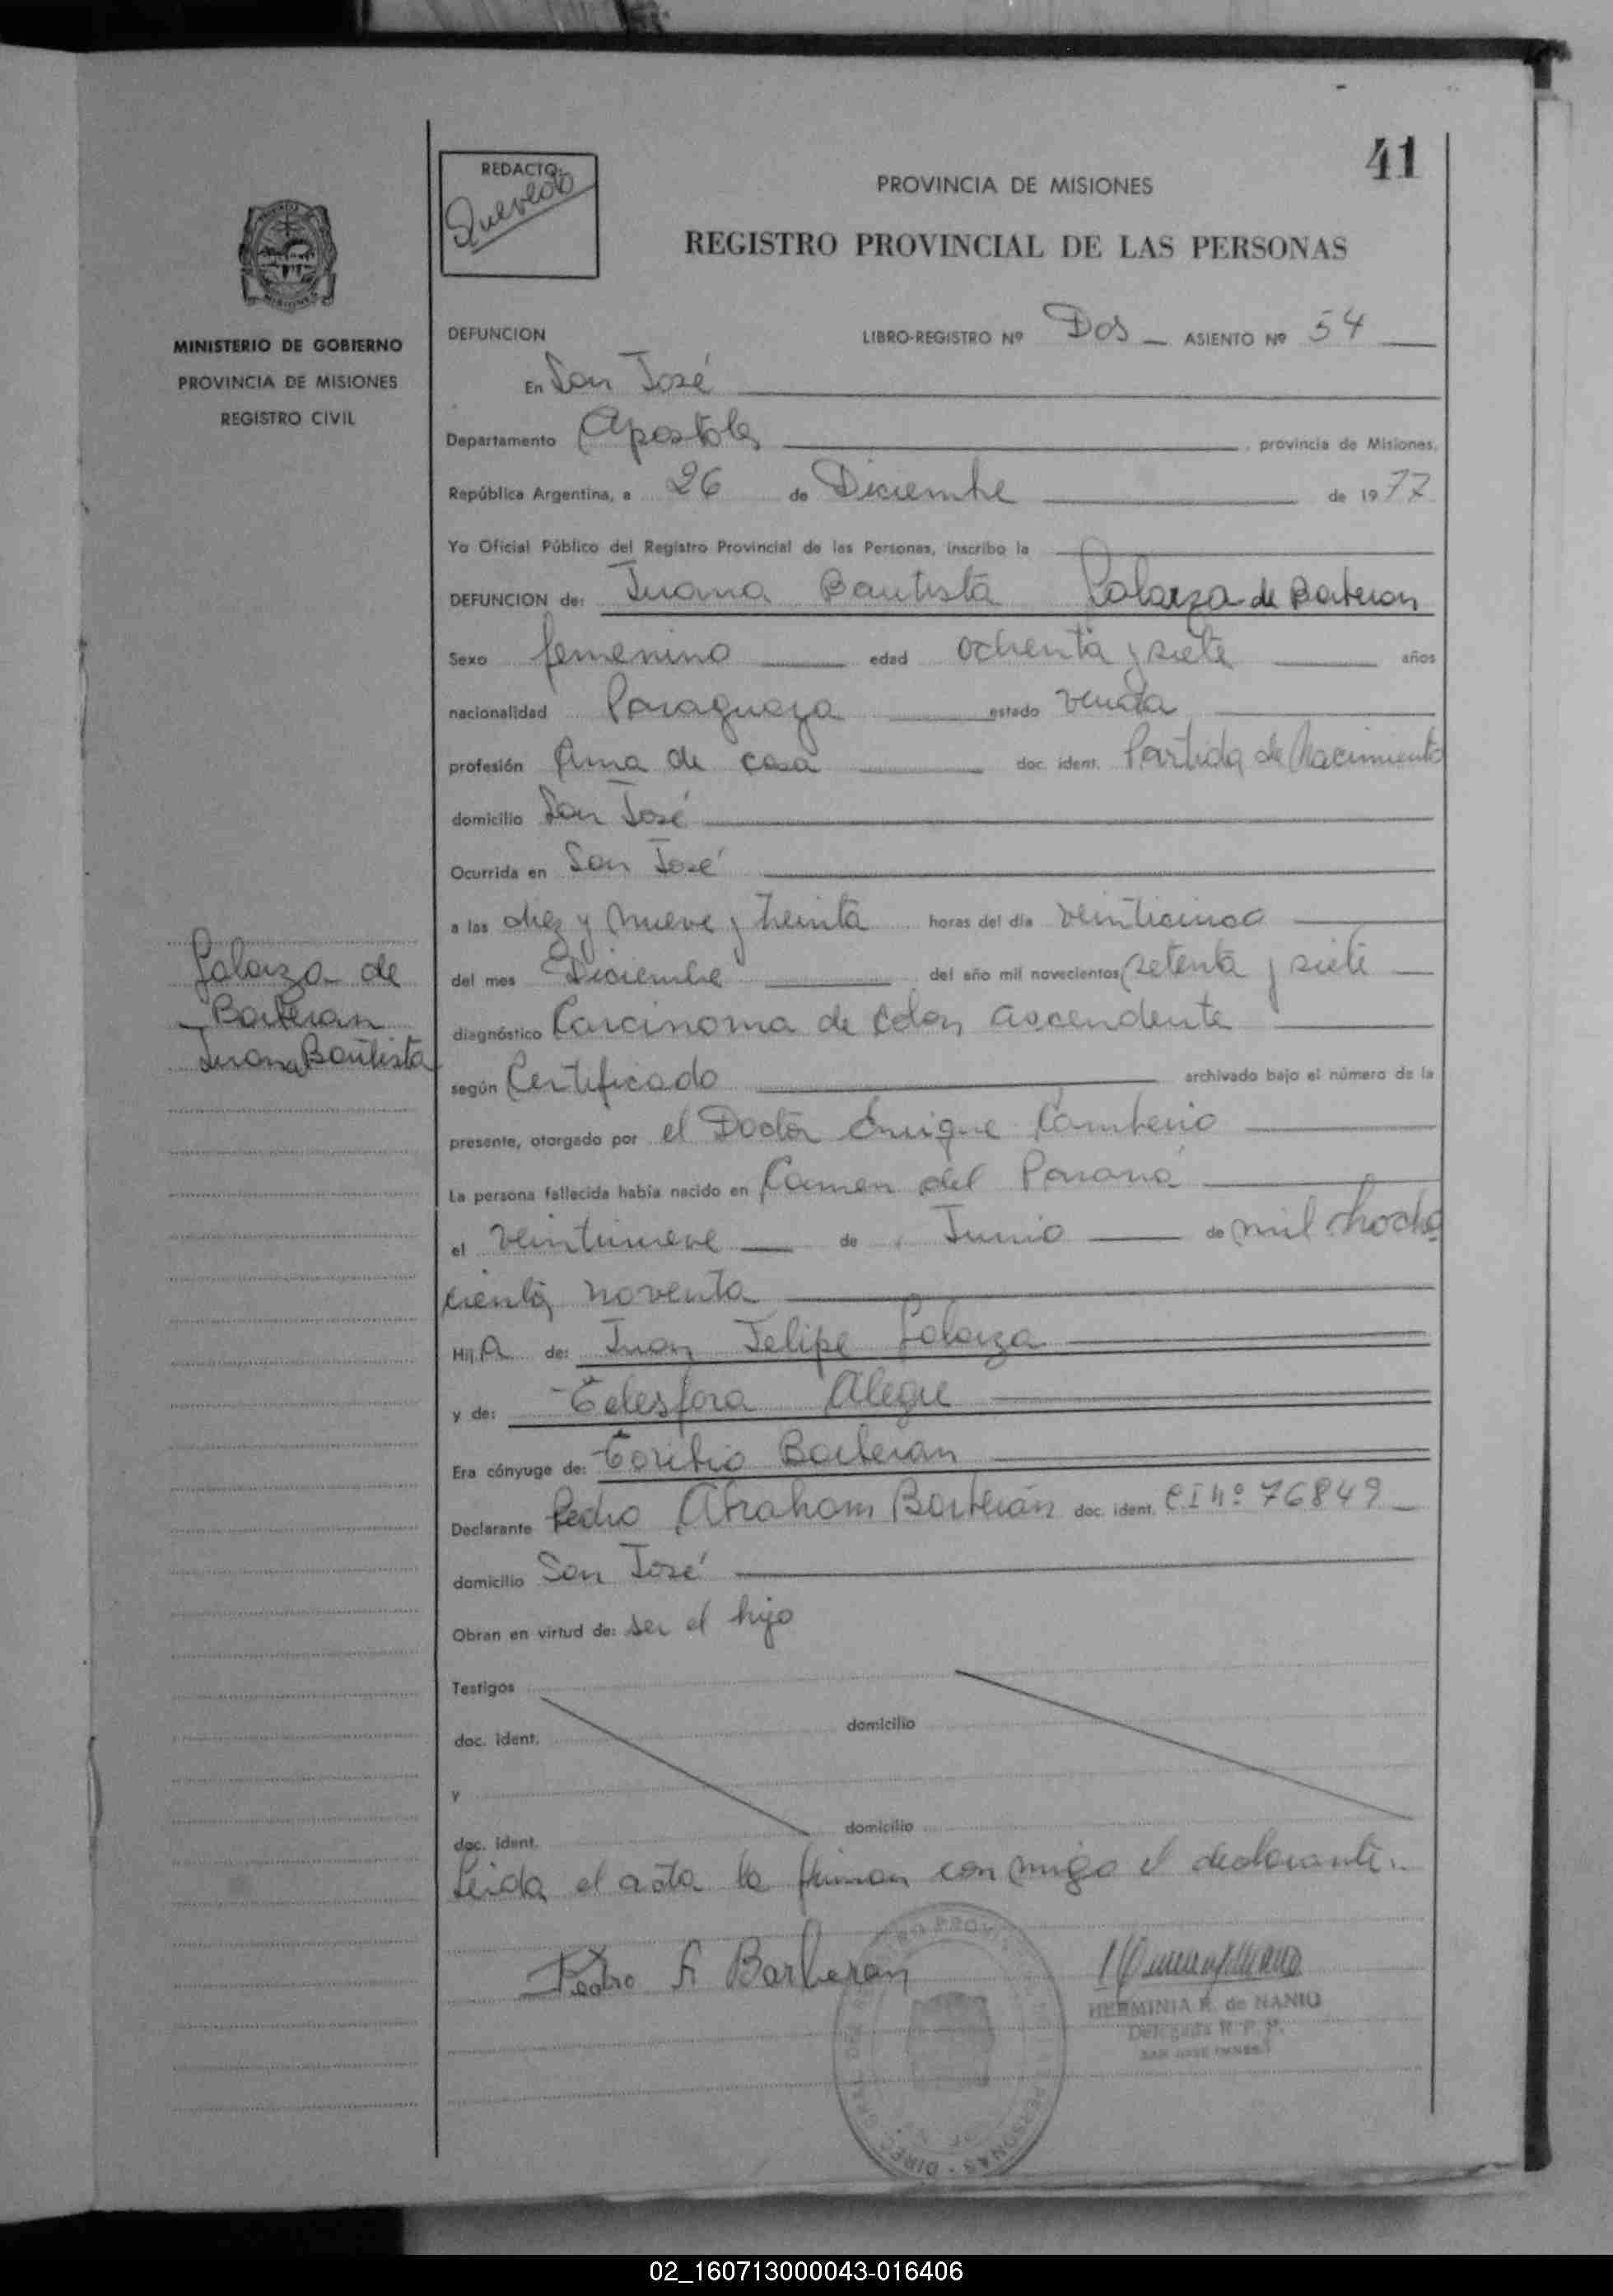 41
REDACTO:
Quevedo
PROVINCIA DE MISIONES
REGISTRO PROVINCIAL DE LAS PERSONAS
MINISTERIO DE GOBIERNO
PROVINCIA DE MISIONES
REGISTRO CIVIL
DEFUNCION LIBRO-REGISTRO Nº Dos ASIENTO Nº 54
En San José
Departamento Apostoles, provincia de Misiones,
República Argentina, a 26 de Diciembre de 1977
Yo Oficial Público del Registro Provincial de las Personas, inscribo la
DEFUNCION de: Juana Bautista Galarza de Barberan
Sexo femenino edad ochenta y siete años
nacionalidad Paraguaya estado viuda
profesión Ama de casa doc. ident. Partida de Nacimiento
domicilio San José
Ocurrida en San José
a las diez y nueve y treinta horas del día veinticinco
del mes Diciembre del año mil novecientos setenta y siete
diagnóstico Carcinoma de Colon ascendente
según Certificado archivado bajo el número de la
presente, otorgado por el Doctor Enrique
La persona fallecida había nacido en Carmen del Paraná
el veintinueve de Junio de mil ochocientos noventa
Hija de: Juan Felipe Galarza
y de: Telesfora Alegre
Era cónyuge de: Toribio Barberan
Declarante Pedro Abraham Barberán doc. ident. CI nº 76849
domicilio San José
Obran en virtud de: ser el hijo
Testigos
doc. ident. domicilio
y
doc. ident. domicilio
Leida el acta la firman conmigo el declarante.
Pedro A Barberan
HERMINIA R. de NANIO
Delegada R. P. P.
Galarza de
Barberan
Juana Bautista
02_160713000043-016406